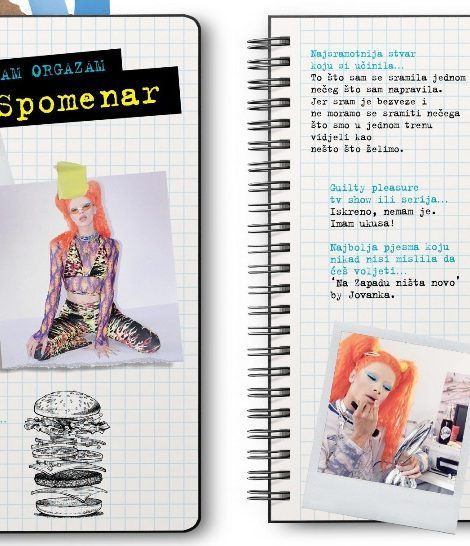 AM ORGAZAM
Spomenar
Najsramotnija stvar
koju si učinila...
To što sam se sramila jednom
nečeg što sam napravila.
Jer sram je bezveze i
ne moramo se sramiti nečega
što smo u jednom trenu
vidjeli kao
nešto što želimo.
Guilty pleasure
tv show ili serija...
Iskreno, nemam je.
Imam ukusa!
Najbolja pjesma koju
nikad nisi mislila da
ćeš voljeti...
'Na Zapadu ništa novo'
by Jovanka.